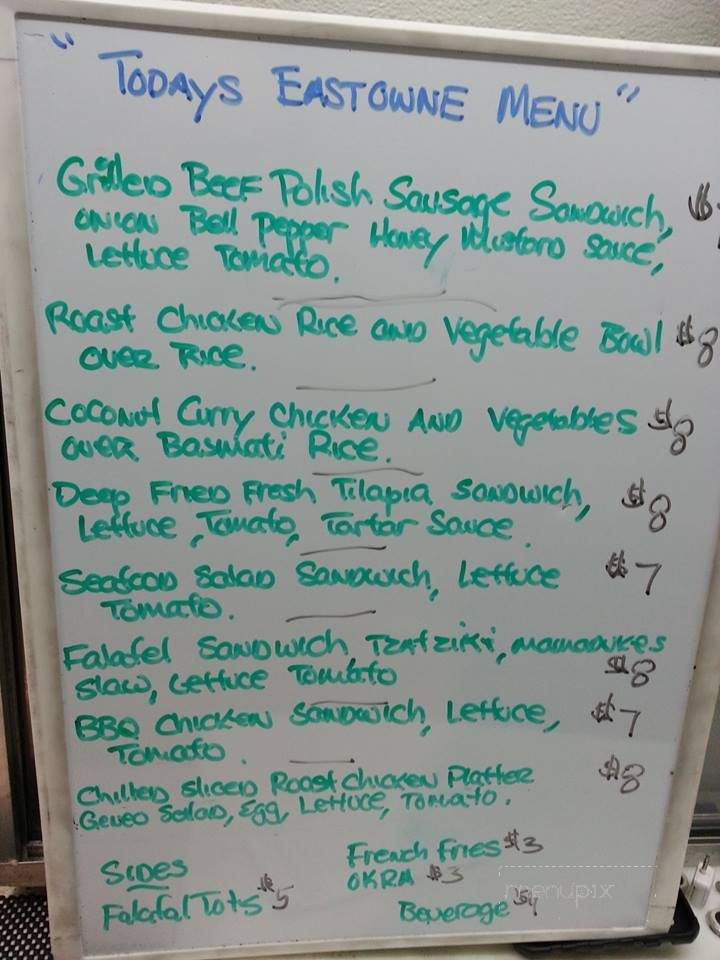 "Todays Eastowne Menu"
Grilled Beef Polish Sausage Sandwich,
onion Bell pepper Honey Mustard sauce,
Lettuce Tomato.
Roast Chicken Rice and Vegetable Bowl $8
over Rice.
Coconut Curry Chicken And Vegetables $8
over Basmati Rice.
Deep Fried Fresh Tilapia Sandwich, $8
Lettuce, Tomato, Tartar Sauce.
Seafood Salad Sandwich, Lettuce $7
Tomato.
Falafel Sandwich Tzatziki, mamadukes
slaw, Lettuce Tomato $8
BBQ Chicken Sandwich, Lettuce, $7
Tomato.
Chilled Sliced Roast Chicken Platter $8
Salad, Egg, Lettuce, Tomato.
Sides
French Fries $3
OKRA $3
Falafal Tots $5
Beverage
menupix